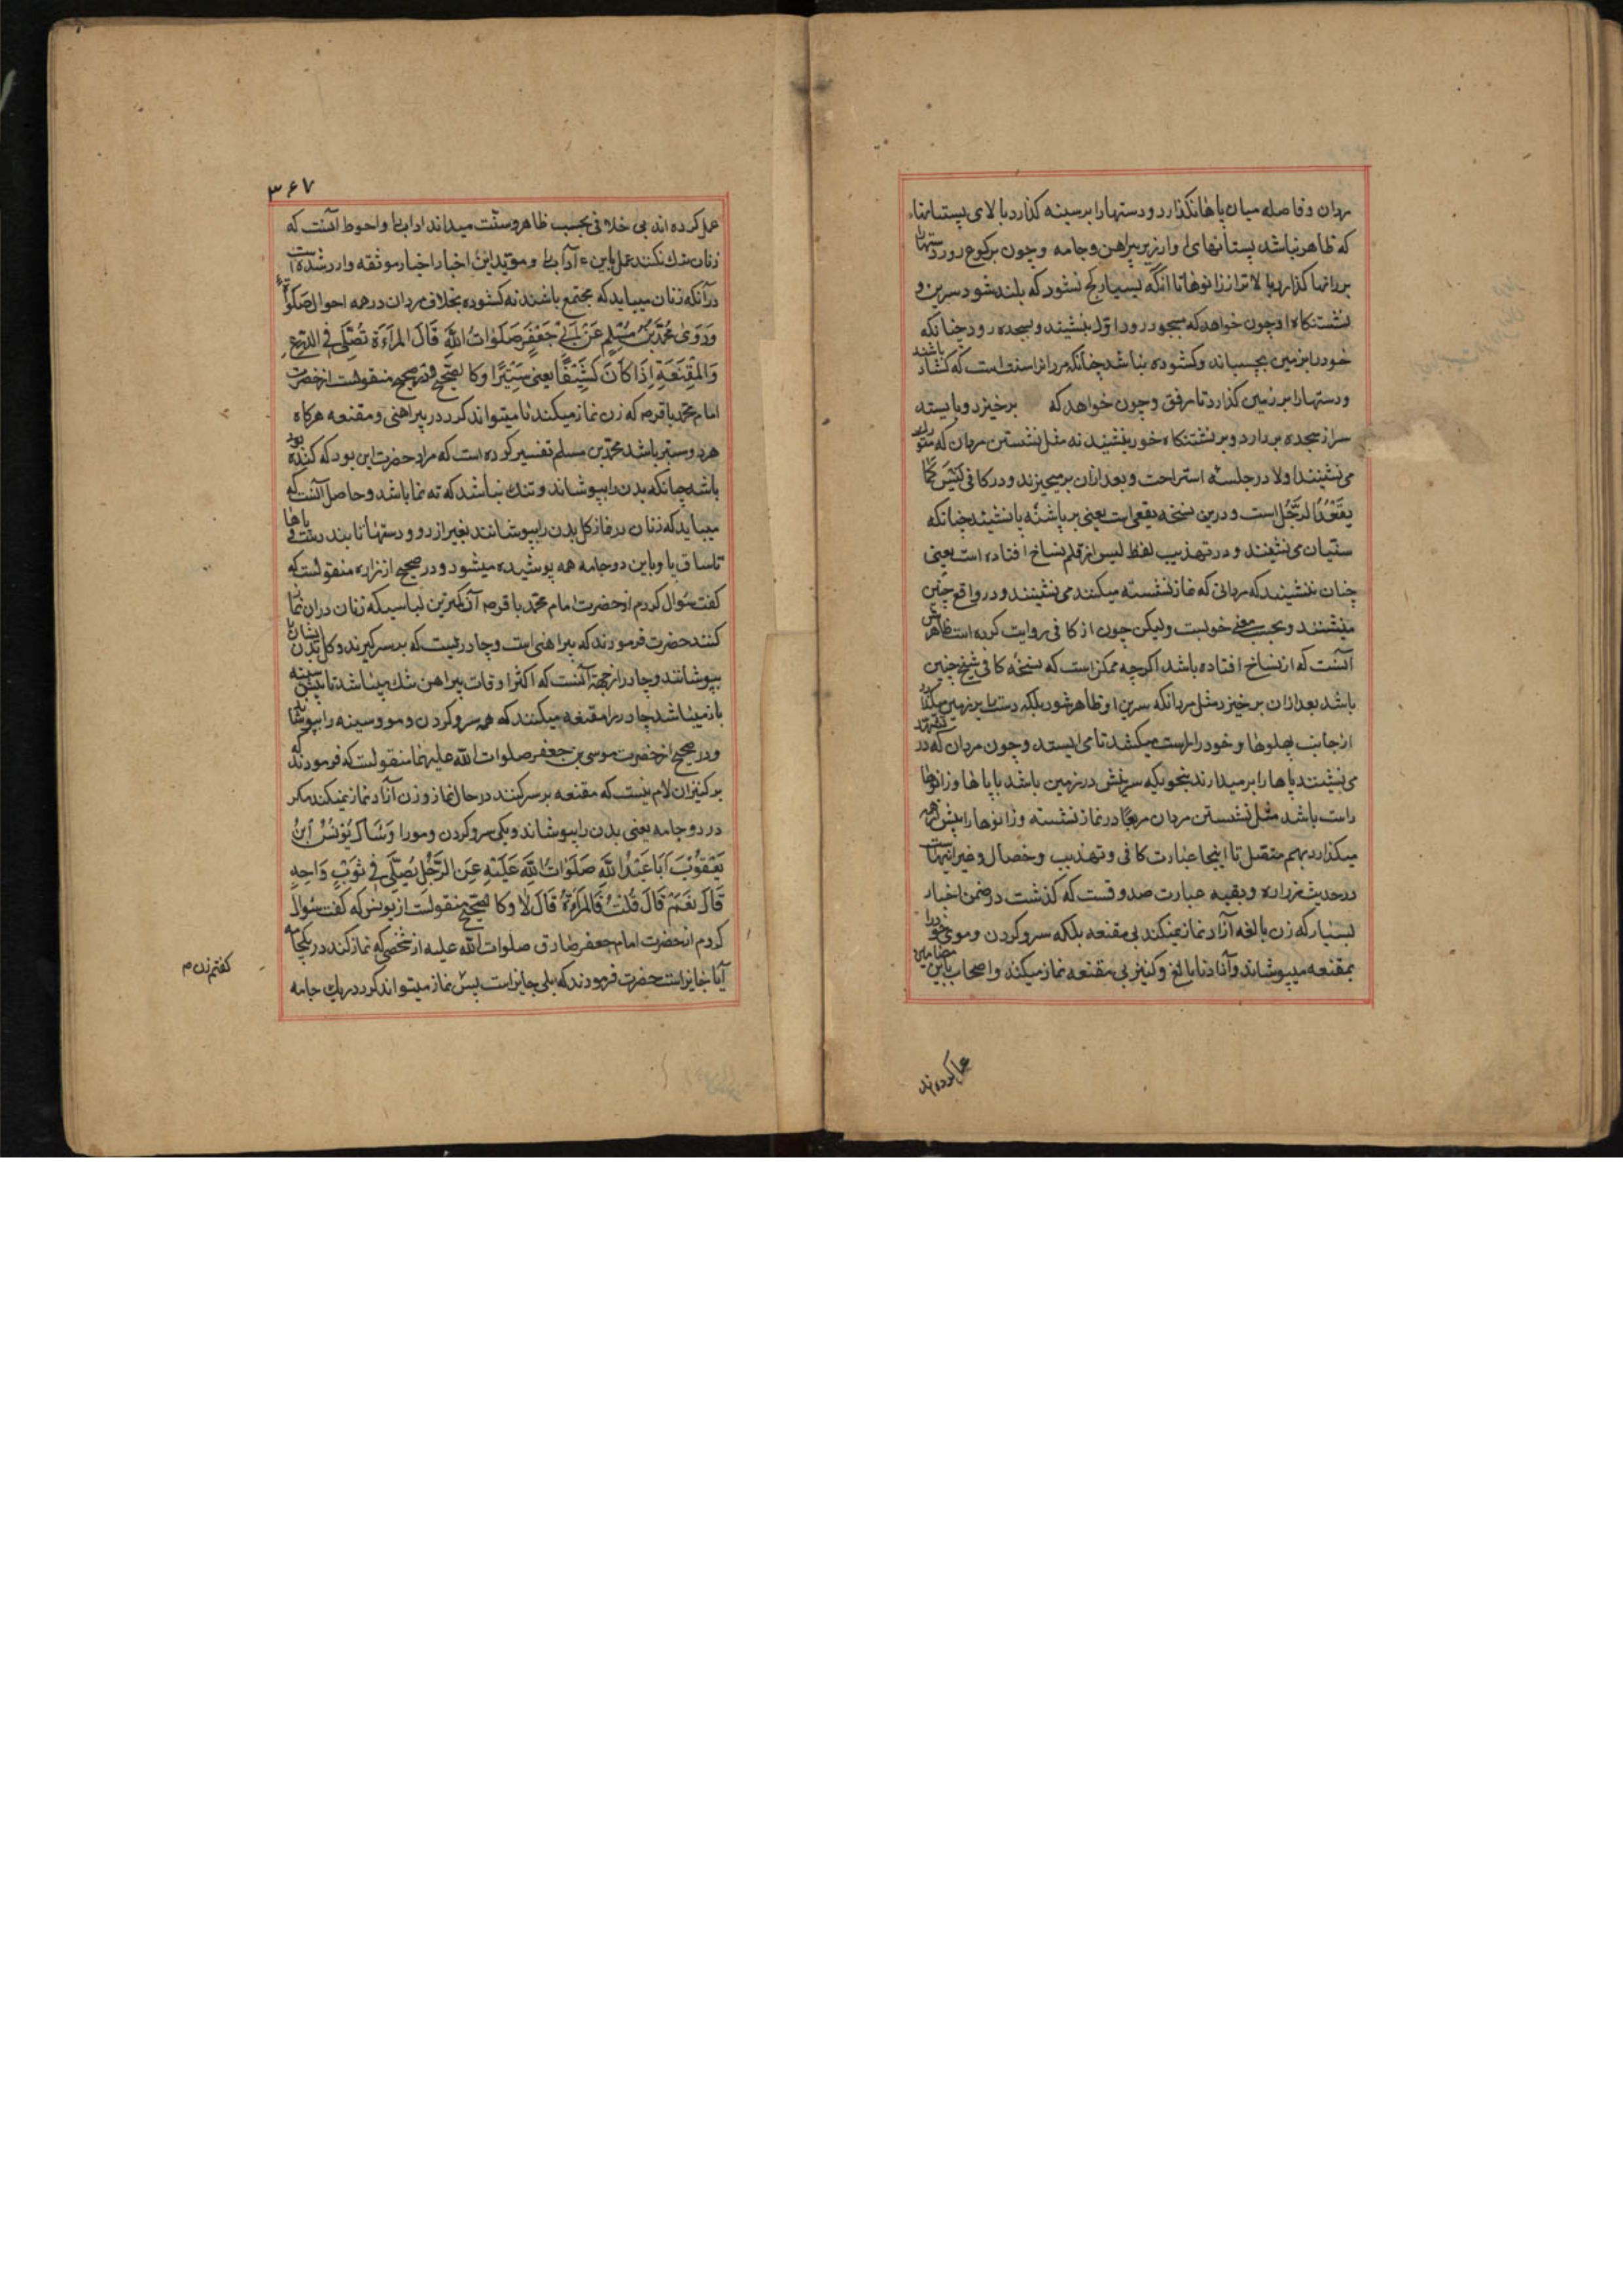 مردان و فاصله میان پاها نکذارد و دستها را بر سینه کذارد بالای پستانها
که ظاهر نباشد پستانهای او از زیر پیراهن و جامه و چون برکوع رود دستها
بر رانها کذارد بالاتر از زانوها تا انکه بسیار کج نشود که بلند شود سرین و
نشستنکاه او چون خواهد که بسجود رود اوّلا بنشیند و بسجده رود چنانکه
خود را بزمین بچسباند و کشوده نباشد چنانکه مردانرا سنت است که کشاده باشند
و دستها را بر زمین کذارد تا مرفق و چون خواهد که برخیزد و بایسته
سر از سجده بردارد و بر نشستنکاه خود بنشیند نه مثل نشستن مردان که
می نشینند اولا در جلسه استراحت و بعد از ان برمیخیزند و در کافی لَیْسَ کَمَا
یَقْعُدُ الرَّجُلُ است و درین نسخه یقعی است یعنی بر پاشنه پا نشیند چنانکه
سنّیان می نشینند و در تهذیب لفظ لیس از قلم نساخ افتاده است یعنی
چنان بنشیند که مردانی که نماز نشسته میکنند می نشینند و در واقع چنین
می‌نشینند و بحسب معنی خوبست ولیکن چون از کافی روایت کرده است ظاهرش
آنست که از نساخ افتاده باشد اکرچه ممکن است که نسخه کافی شیخ چنین
باشد بعد از ان برخیزد مثل مردان که سرین او ظاهر شود بلکه دستها بر زمین میکذارد
از جانب پهلوها و خود را راست میکشد تا می ایستد و چون مردان که در تشهد
می نشینند پاها را برمیدارند بنحویکه سرینش در زمین باشد با پاها و زانوها
راست باشد مثل نشستن مردان مربعا در نماز نشسته و زانوها را پیش هم
میکذارد بهم متصل تا اینجا عبارت کافی و تهذیب و خصال و غیر اینهاست
در حدیث زراره و بقیه عبارت صدوقست که کذشت در ضمن اخبار
بسیار که زن بالغه آزاد نماز نمیکند بی مقنعه بلکه سر و کردن و موی خود را
بمقنعه میپوشاند و آزاد نابالغ و کنیز بی مقنعه نماز میکند و اصحاب باین مضامین
عمل کرده اند
۳۶۷
عمل کرده اند بی خلافی بحسب ظاهر و سنّت میدانند اداب را و احوط آنست که
زنان ترک نکنند عمل باین آداب را و مؤید این اخبار اخبار موثقه وارد شده است
در آنکه زنان میباید که مجتمع باشند نه کشوده بخلاف مردان در همه احوال صلوة
وَرَوَیٰ مُحَمَّدُ بْنُ مُسْلِمٍ عَنْ اَبِیْ جَعْفَرٍ صَلَوٰاتُ اللّٰهِ قَالَ المَرْاَةُ تُصَلِّی فِی الدِّرْعِ
وَالْمِقْنَعَةِ اِذَا کَانَ کَثِیْفًا یعنی سَتِیْرًا و کالصحیح و در صحیح منقولست از حضرت
امام محمد باقر ص که زن نماز میکند تا میتواند کرد در پیراهنی و مقنعه هرکاه
هر دو ستیر باشد محمّد بن مسلم تفسیر کرده است که مراد حضرت این بود که کنده بود
باشد چنانکه بدن را بپوشاند و تنک نباشد که ته نما باشد و حاصل آنست که
میباید که زنان در نماز کل بدن را بپوشانند بغیر از رو و دستها تا بند دست و پاها
تا ساق پا و باین دو جامه همه پوشیده میشود و در صحیح از زراره منقولست که
کفت سؤال کردم از حضرت امام محمّد باقر ص آن کمترین لباسی که زنان دران نماز
کنند حضرت فرمودند که پیراهنی است و چادریست که بر سر کیرند و کل بدن ایشان را
بپوشانند و چادر از جهة آنست که اکثر اوقات پیراهن تنک میباشد تا پیش سینه
باز میباشد چادر را مقنعه میکنند که هم سر و کردن و مو و سینه را بپوشاند
و در صحیح از حضرت موسی بن جعفر صلوات الله علیهما منقولست که فرمودند که
بر کنیزان لازم نیست که مقنعه بر سر کنند در حال نماز و زن آزاد نماز نمیکند مکر
در دو جامه یعنی بدن را بپوشاند و یکی سر و کردن و مو را وَسَاَلَ یُوْنُسُ ابْنُ
یَعْقُوْبَ اَبَا عَبْدِ اللّٰهِ صَلَوٰاتُ اللّٰهِ عَلَیْهِ عَنِ الرَّجُلِ یُصَلِّی فِیْ ثَوْبٍ وَاحِدٍ
قَالَ نَعَمْ قَالَ قُلْتُ فَالْمَرْاَةُ قَالَ لٰا و کالصحیح منقولست از یونس که کفت سؤال
کردم از حضرت امام جعفر صادق صلوات الله علیه از شخصی که نماز کند در یک جامه
آیا جایز است حضرت فرمودند که بلی جایز است پس نماز میتواند کرد در یک جامه
کفتم زن م